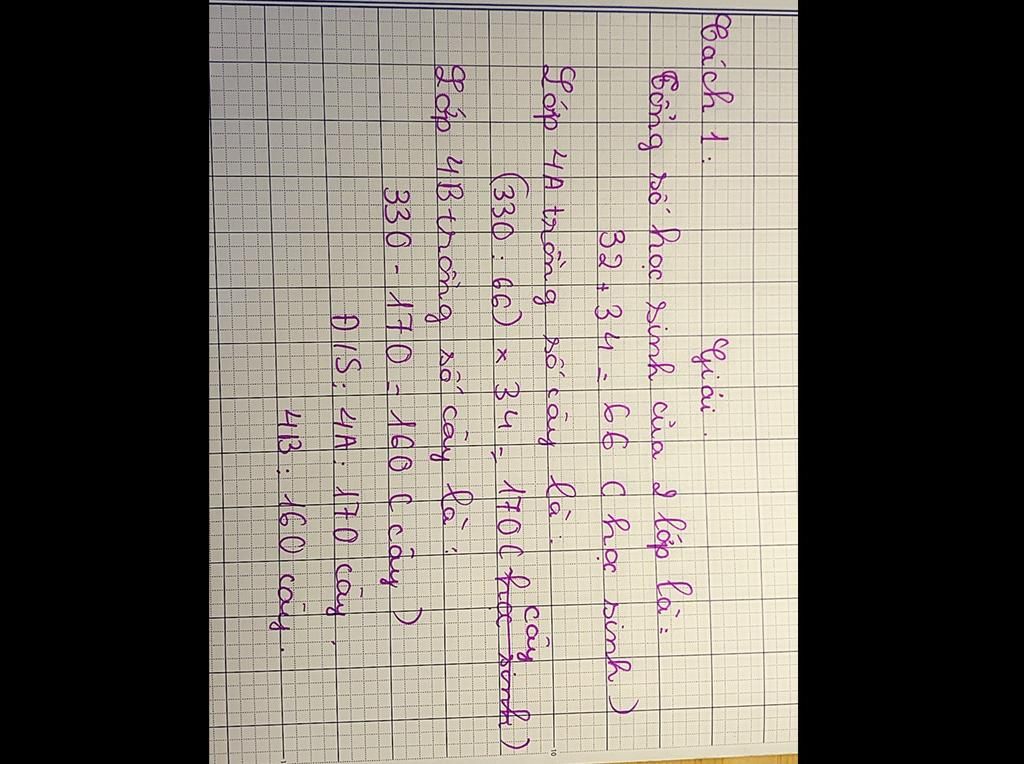 Giải.
Cách 1:
Tổng số học sinh của 2 lớp là:
32 + 34 = 66 (học sinh)
Lớp 4A trồng số cây là:
cây
(330 : 66) × 34 = 170 (học sinh)
Lớp 4B trồng số cây là:
330 - 170 = 160 (cây)
Đ/S: 4A: 170 cây.
4B: 160 cây.
10